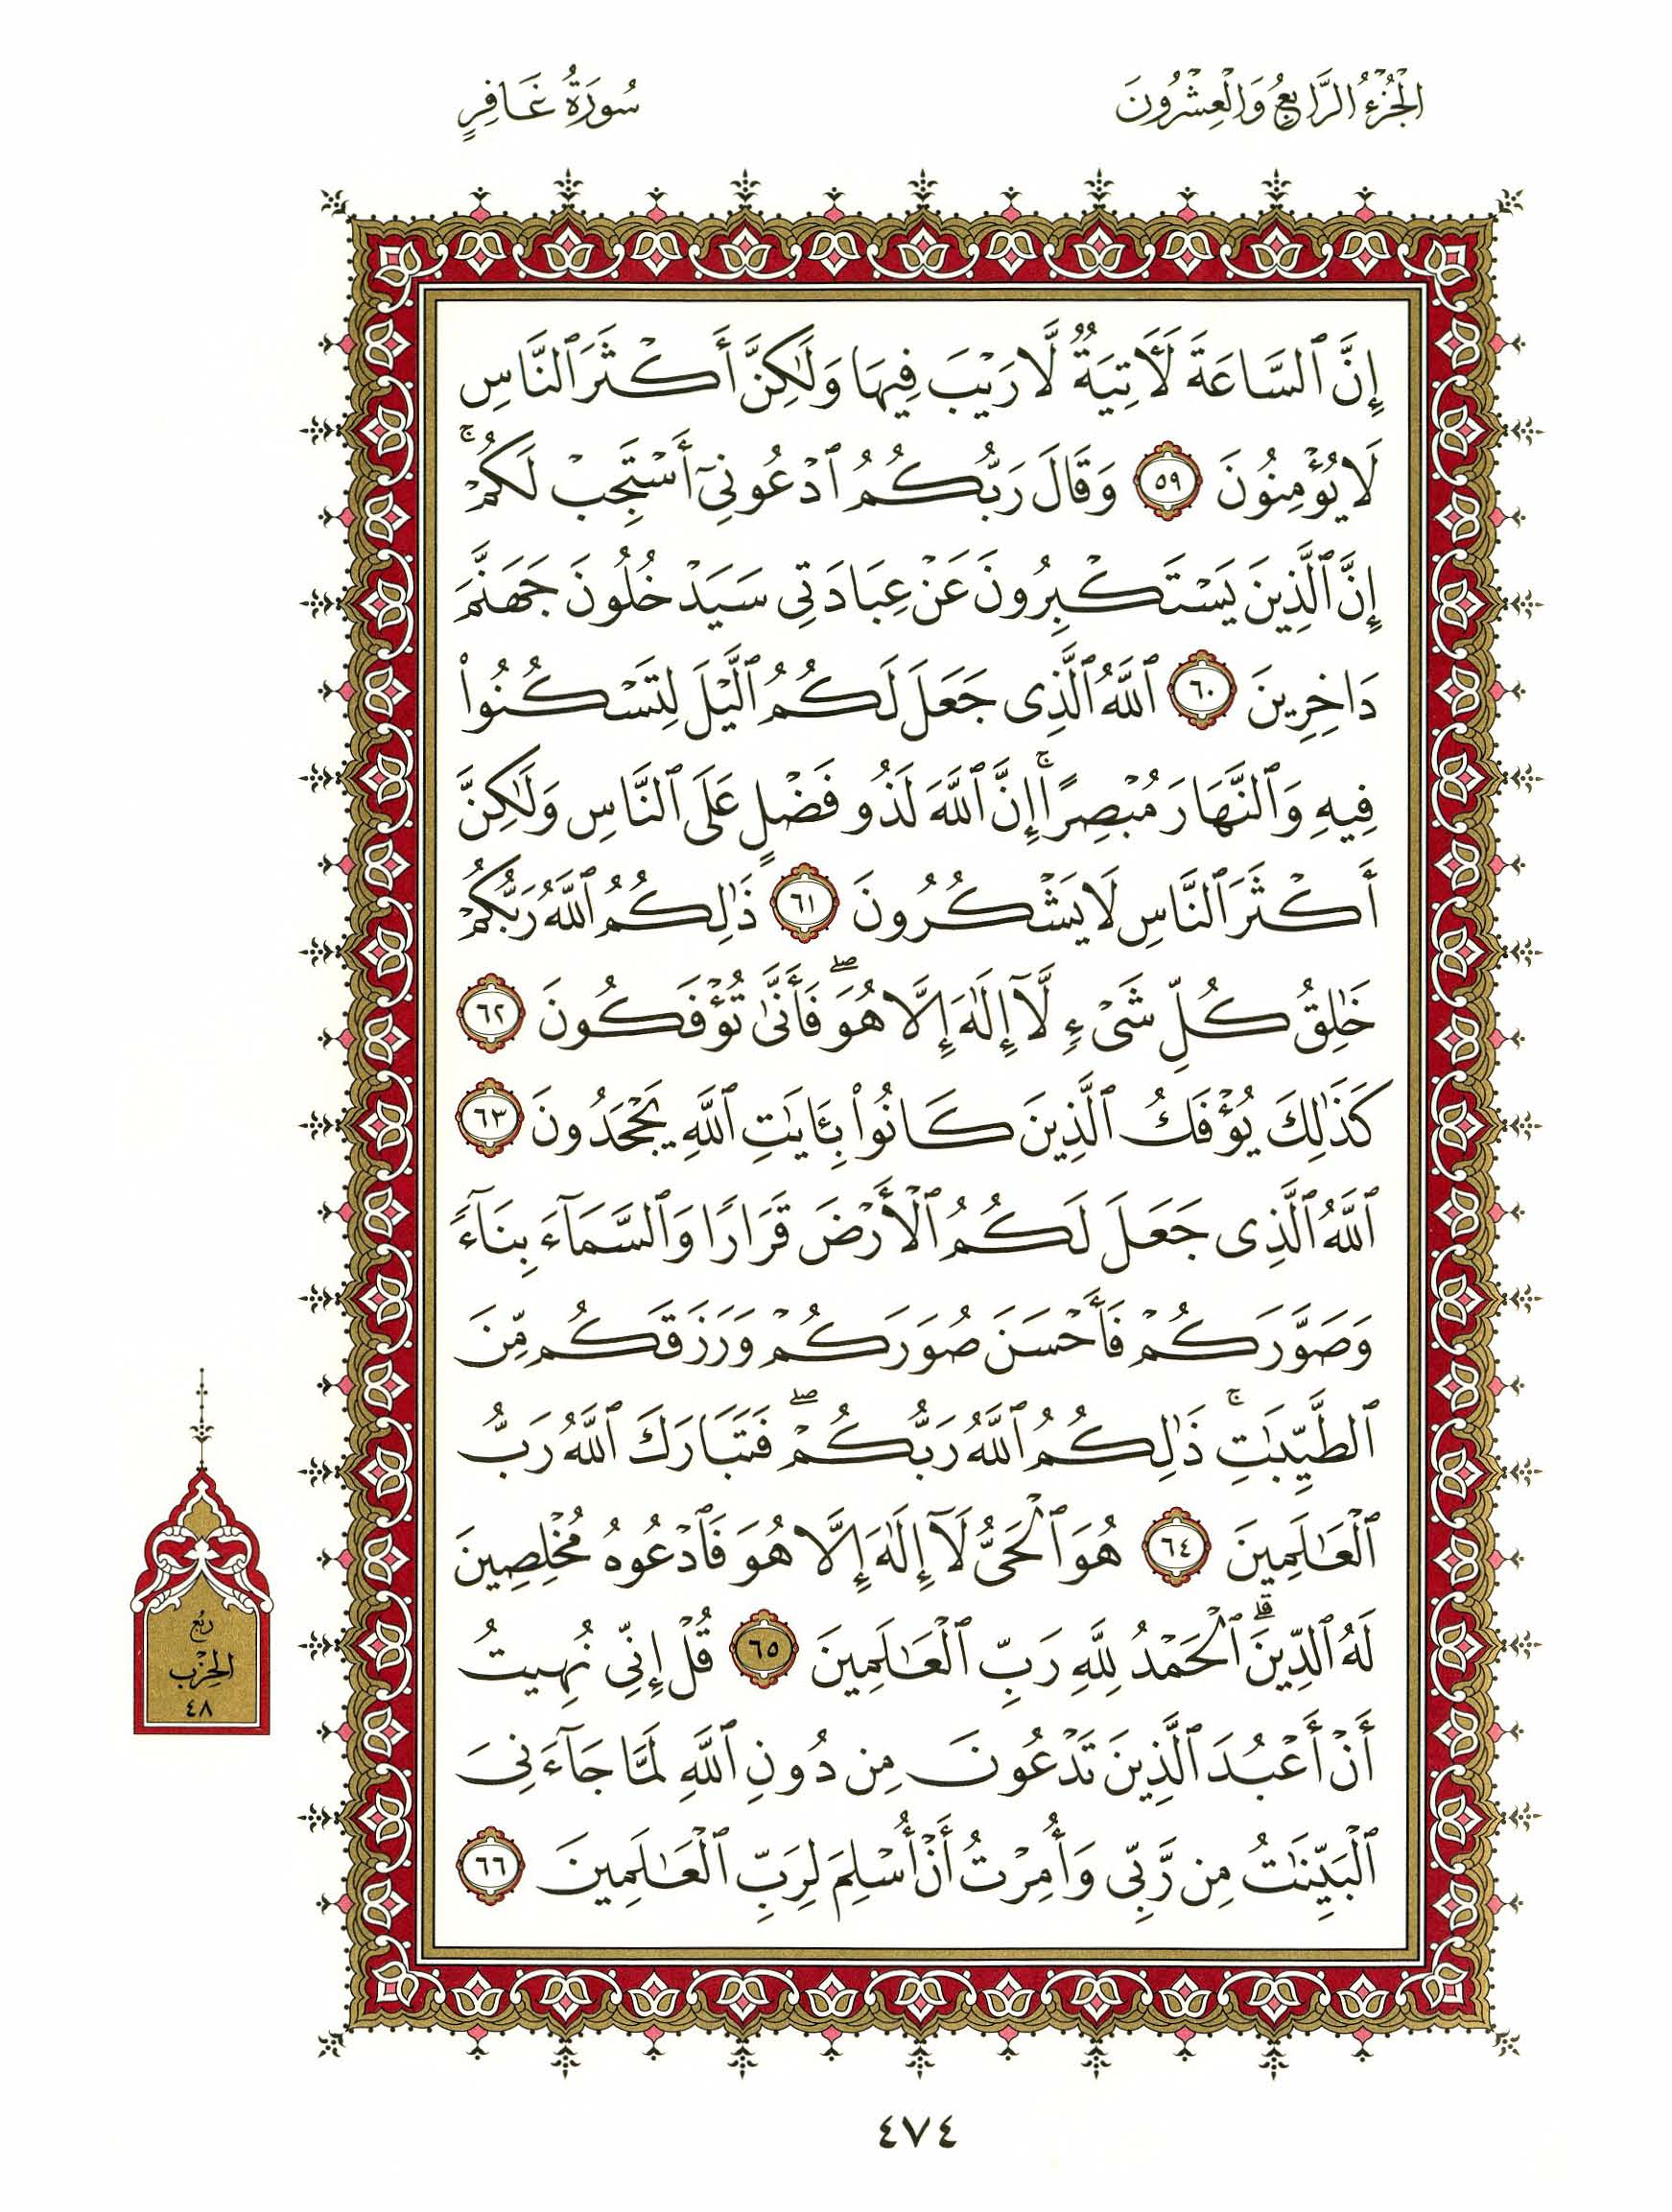 الْجُزْءُ الرَّابِعُ وَالْعِشْرُونَ
سُورَةُ غَافِرٍ
إِنَّ ٱلسَّاعَةَ لَأٓتِيَةٌ لَّا رَيْبَ فِيهَا وَلَٰكِنَّ أَكْثَرَ ٱلنَّاسِ
لَا يُؤْمِنُونَ ٥٩ وَقَالَ رَبُّكُمُ ٱدْعُونِىٓ أَسْتَجِبْ لَكُمْ ۚ
إِنَّ ٱلَّذِينَ يَسْتَكْبِرُونَ عَنْ عِبَادَتِى سَيَدْخُلُونَ جَهَنَّمَ
دَاخِرِينَ ٦٠ ٱللَّهُ ٱلَّذِى جَعَلَ لَكُمُ ٱلَّيْلَ لِتَسْكُنُوا۟
فِيهِ وَٱلنَّهَارَ مُبْصِرًا ۚ إِنَّ ٱللَّهَ لَذُو فَضْلٍ عَلَى ٱلنَّاسِ وَلَٰكِنَّ
أَكْثَرَ ٱلنَّاسِ لَا يَشْكُرُونَ ٦١ ذَٰلِكُمُ ٱللَّهُ رَبُّكُمْ
خَٰلِقُ كُلِّ شَىْءٍ لَّآ إِلَٰهَ إِلَّا هُوَ ۖ فَأَنَّىٰ تُؤْفَكُونَ ٦٢
كَذَٰلِكَ يُؤْفَكُ ٱلَّذِينَ كَانُوا۟ بِـَٔايَٰتِ ٱللَّهِ يَجْحَدُونَ ٦٣
ٱللَّهُ ٱلَّذِى جَعَلَ لَكُمُ ٱلْأَرْضَ قَرَارًا وَٱلسَّمَآءَ بِنَآءً
وَصَوَّرَكُمْ فَأَحْسَنَ صُوَرَكُمْ وَرَزَقَكُم مِّنَ
ٱلطَّيِّبَٰتِ ۚ ذَٰلِكُمُ ٱللَّهُ رَبُّكُمْ ۖ فَتَبَارَكَ ٱللَّهُ رَبُّ
ٱلْعَٰلَمِينَ ٦٤ هُوَ ٱلْحَىُّ لَآ إِلَٰهَ إِلَّا هُوَ فَٱدْعُوهُ مُخْلِصِينَ
لَهُ ٱلدِّينَ ۗ ٱلْحَمْدُ لِلَّهِ رَبِّ ٱلْعَٰلَمِينَ ٦٥ قُلْ إِنِّى نُهِيتُ
أَنْ أَعْبُدَ ٱلَّذِينَ تَدْعُونَ مِن دُونِ ٱللَّهِ لَمَّا جَآءَنِىَ
ٱلْبَيِّنَٰتُ مِن رَّبِّى وَأُمِرْتُ أَنْ أُسْلِمَ لِرَبِّ ٱلْعَٰلَمِينَ ٦٦
رُبُع
الْحِزْب
٤٨
٤٧٤